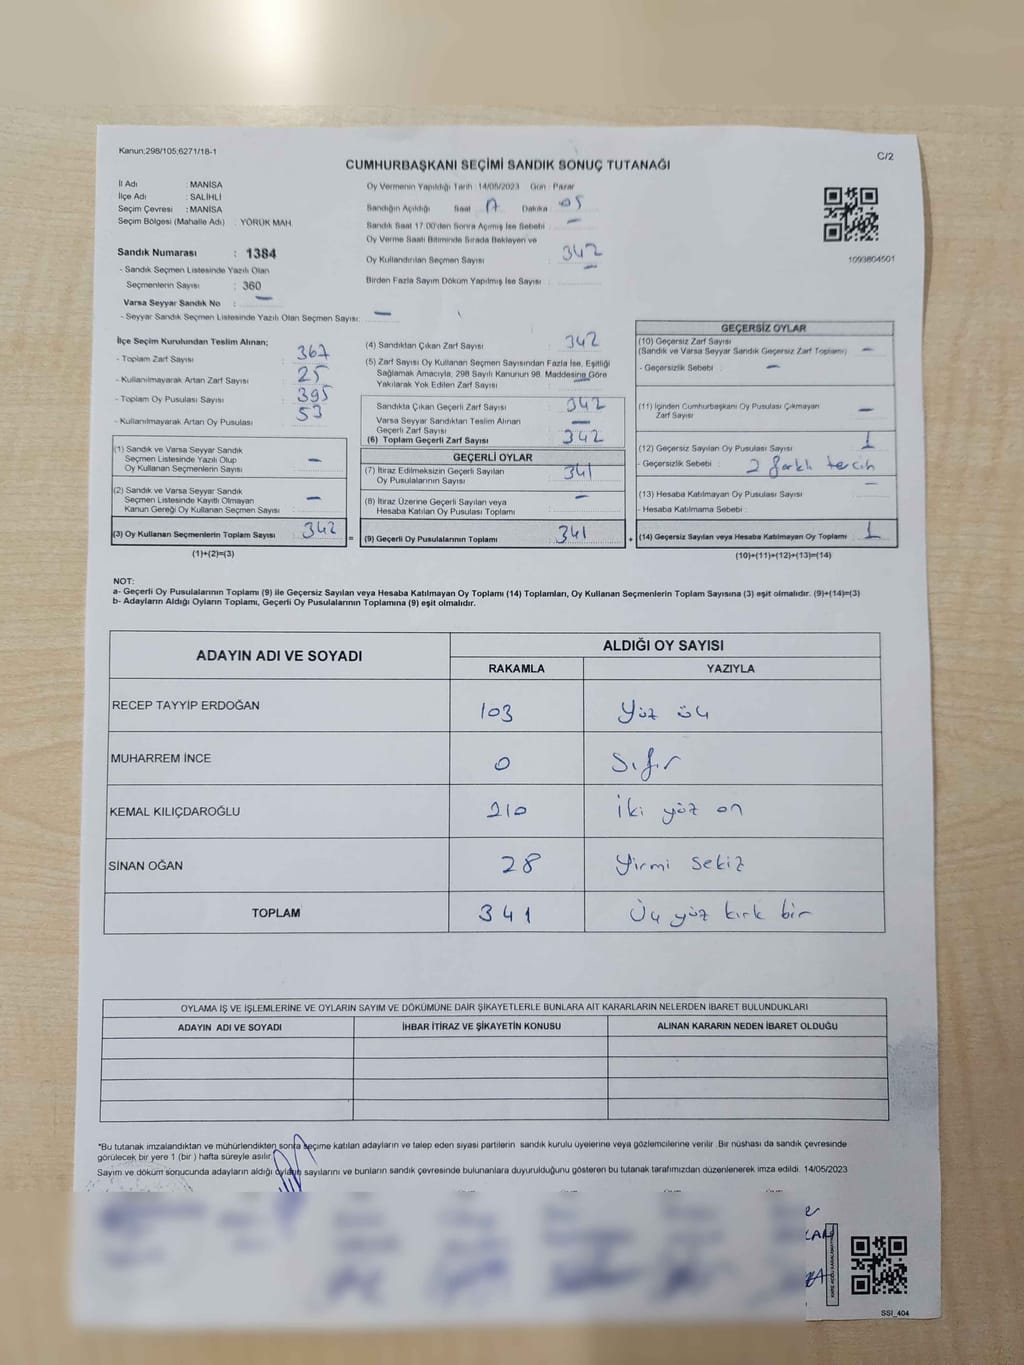 Kanun;298/105,6271/18-1
C/2
CUMHURBAŞKANI SEÇİMİ SANDIK SONUÇ TUTANAĞI
İl Adı : MANİSA
İlçe Adı : SALİHLİ
Seçim Çevresi : MANİSA
Seçim Bölgesi (Mahalle Adı) : YÖRÜK MAH.
Sandık Numarası : 1384
- Sandık Seçmen Listesinde Yazılı Olan
Seçmenlerin Sayısı : 360
Varsa Seyyar Sandık No : —
- Seyyar Sandık Seçmen Listesinde Yazılı Olan Seçmen Sayısı: —
Oy Vermenin Yapıldığı Tarih 14/05/2023 Gün : Pazar
Sandığın Açıldığı Saat Dakika 05
Sandık Saat 17.00'den Sonra Açılmış İse Sebebi : —
Oy Verme Saati Bitiminde Sırada Bekleyen ve
Oy Kullandırılan Seçmen Sayısı : 342
Birden Fazla Sayım Döküm Yapılmış İse Sayısı : —
1093804501
İlçe Seçim Kurulundan Teslim Alınan;
- Toplam Zarf Sayısı : 367
- Kullanılmayarak Artan Zarf Sayısı : 25
- Toplam Oy Pusulası Sayısı : 395
- Kullanılmayarak Artan Oy Pusulası : 53
(1) Sandık ve Varsa Seyyar Sandık
Seçmen Listesinde Yazılı Olup
Oy Kullanan Seçmenlerin Sayısı : —
(2) Sandık ve Varsa Seyyar Sandık
Seçmen Listesinde Kayıtlı Olmayan
Kanun Gereği Oy Kullanan Seçmen Sayısı : —
(3) Oy Kullanan Seçmenlerin Toplam Sayısı : 342
(1)+(2)=(3)
(4) Sandıktan Çıkan Zarf Sayısı : 342
(5) Zarf Sayısı Oy Kullanan Seçmen Sayısından Fazla İse, Eşitliği
Sağlamak Amacıyla, 298 Sayılı Kanunun 98. Maddesine Göre
Yakılarak Yok Edilen Zarf Sayısı : —
Sandıkta Çıkan Geçerli Zarf Sayısı : 342
Varsa Seyyar Sandıktan Teslim Alınan
Geçerli Zarf Sayısı : —
(6) Toplam Geçerli Zarf Sayısı : 342
GEÇERLİ OYLAR
(7) İtiraz Edilmeksizin Geçerli Sayılan
Oy Pusulalarının Sayısı : 341
(8) İtiraz Üzerine Geçerli Sayılan veya
Hesaba Katılan Oy Pusulası Toplamı : —
= (9) Geçerli Oy Pusulalarının Toplamı : 341 +
GEÇERSİZ OYLAR
(10) Geçersiz Zarf Sayısı
(Sandık ve Varsa Seyyar Sandık Geçersiz Zarf Toplamı) : —
- Geçersizlik Sebebi : —
(11) İçinden Cumhurbaşkanı Oy Pusulası Çıkmayan
Zarf Sayısı : —
(12) Geçersiz Sayılan Oy Pusulası Sayısı : 1
- Geçersizlik Sebebi : 2 farklı tercih
(13) Hesaba Katılmayan Oy Pusulası Sayısı : —
- Hesaba Katılmama Sebebi :
(14) Geçersiz Sayılan veya Hesaba Katılmayan Oy Toplamı : 1
(10)+(11)+(12)+(13)=(14)
NOT:
a- Geçerli Oy Pusulalarının Toplamı (9) ile Geçersiz Sayılan veya Hesaba Katılmayan Oy Toplamı (14) Toplamları, Oy Kullanan Seçmenlerin Toplam Sayısına (3) eşit olmalıdır. (9)+(14)=(3)
b- Adayların Aldığı Oyların Toplamı, Geçerli Oy Pusulalarının Toplamına (9) eşit olmalıdır.
ADAYIN ADI VE SOYADI
ALDIĞI OY SAYISI
RAKAMLA YAZIYLA
RECEP TAYYİP ERDOĞAN 103 Yüz üç
MUHARREM İNCE 0 Sıfır
KEMAL KILIÇDAROĞLU 210 İki yüz on
SİNAN OĞAN 28 Yirmi sekiz
TOPLAM 341 Üç yüz kırk bir
OYLAMA İŞ VE İŞLEMLERİNE VE OYLARIN SAYIM VE DÖKÜMÜNE DAİR ŞİKAYETLERLE BUNLARA AİT KARARLARIN NELERDEN İBARET BULUNDUKLARI
ADAYIN ADI VE SOYADI İHBAR İTİRAZ VE ŞİKAYETİN KONUSU ALINAN KARARIN NEDEN İBARET OLDUĞU
*Bu tutanak imzalandıktan ve mühürlendikten sonra seçime katılan adayların ve talep eden siyasi partilerin sandık kurulu üyelerine veya gözlemcilerine verilir. Bir nüshası da sandık çevresinde
görülecek bir yere 1 (bir) hafta süreyle asılır.
Sayım ve döküm sonucunda adayların aldığı oyların sayılarını ve bunların sandık çevresinde bulunanlara duyurulduğunu gösteren bu tutanak tarafımızdan düzenlenerek imza edildi. 14/05/2023
SSI_404